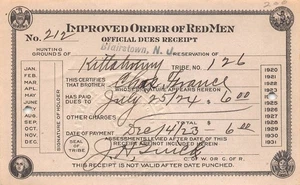 IMPROVED ORDER OF RED MEN
OFFICIAL DUES RECEIPT
No. 212
Blairstown, N. J.
HUNTING GROUNDS OF
RESERVATION OF
Kittatinny TRIBE, NO. 126
THIS CERTIFIES THAT BROTHER Chas. France
WHOSE SIGNATURE APPEARS HEREON
HAS PAID DUES TO July 25/24 $ 6.00
OTHER CHARGES
DATE OF PAYMENT Dec 14/23 $ 6.00
ASSESSMENTS LEVIED AFTER DATE OF THIS
SEAL OF TRIBE
C. OF W. OR C. OF R.
THIS RECEIPT IS NOT VALID AFTER DATE PUNCHED.
SIGNATURE OF HOLDER
JAN.
FEB.
MAR.
APR.
MAY
JUNE
JULY
AUG.
SEPT.
OCT.
NOV.
DEC.
1920
1921
1922
1923
1925
1926
1927
1928
1929
1930
1931